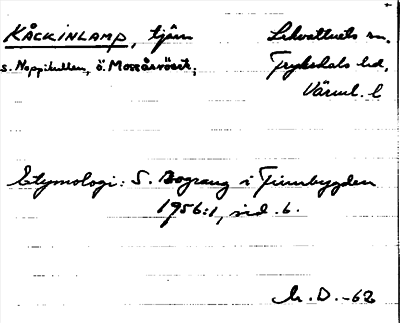 KÅCKINLAMP, tjärn
Lekvattnets sn,
s. Noppikullen, ö. Morråsväst,
Fryksdals hd,
Värml. l
Etymologi: S. Bograng i Finnbygden
1956:1, sid. 6.
M. D. -62